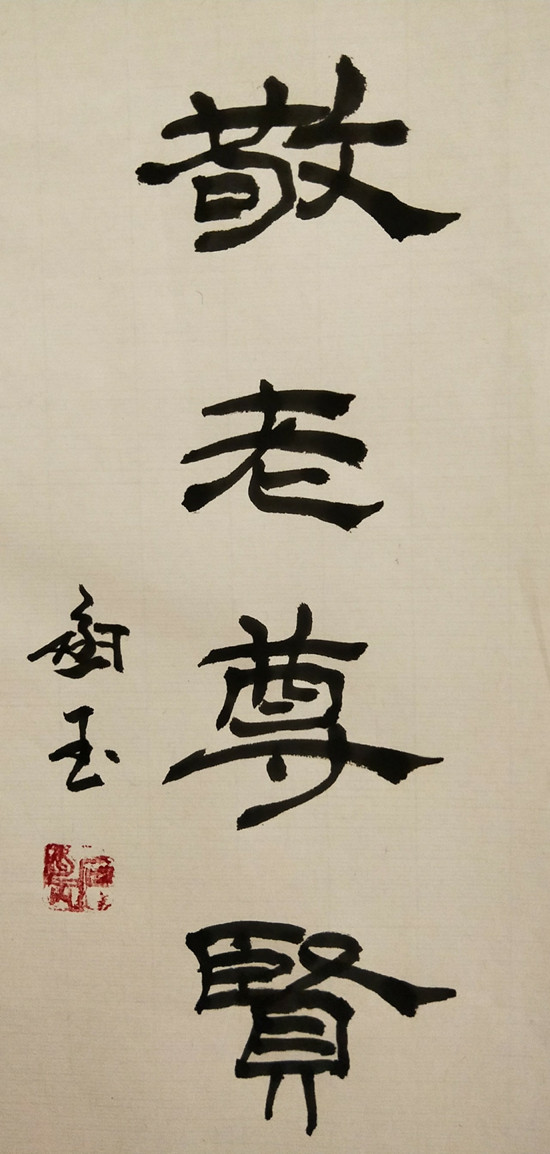 敬老尊賢
玉